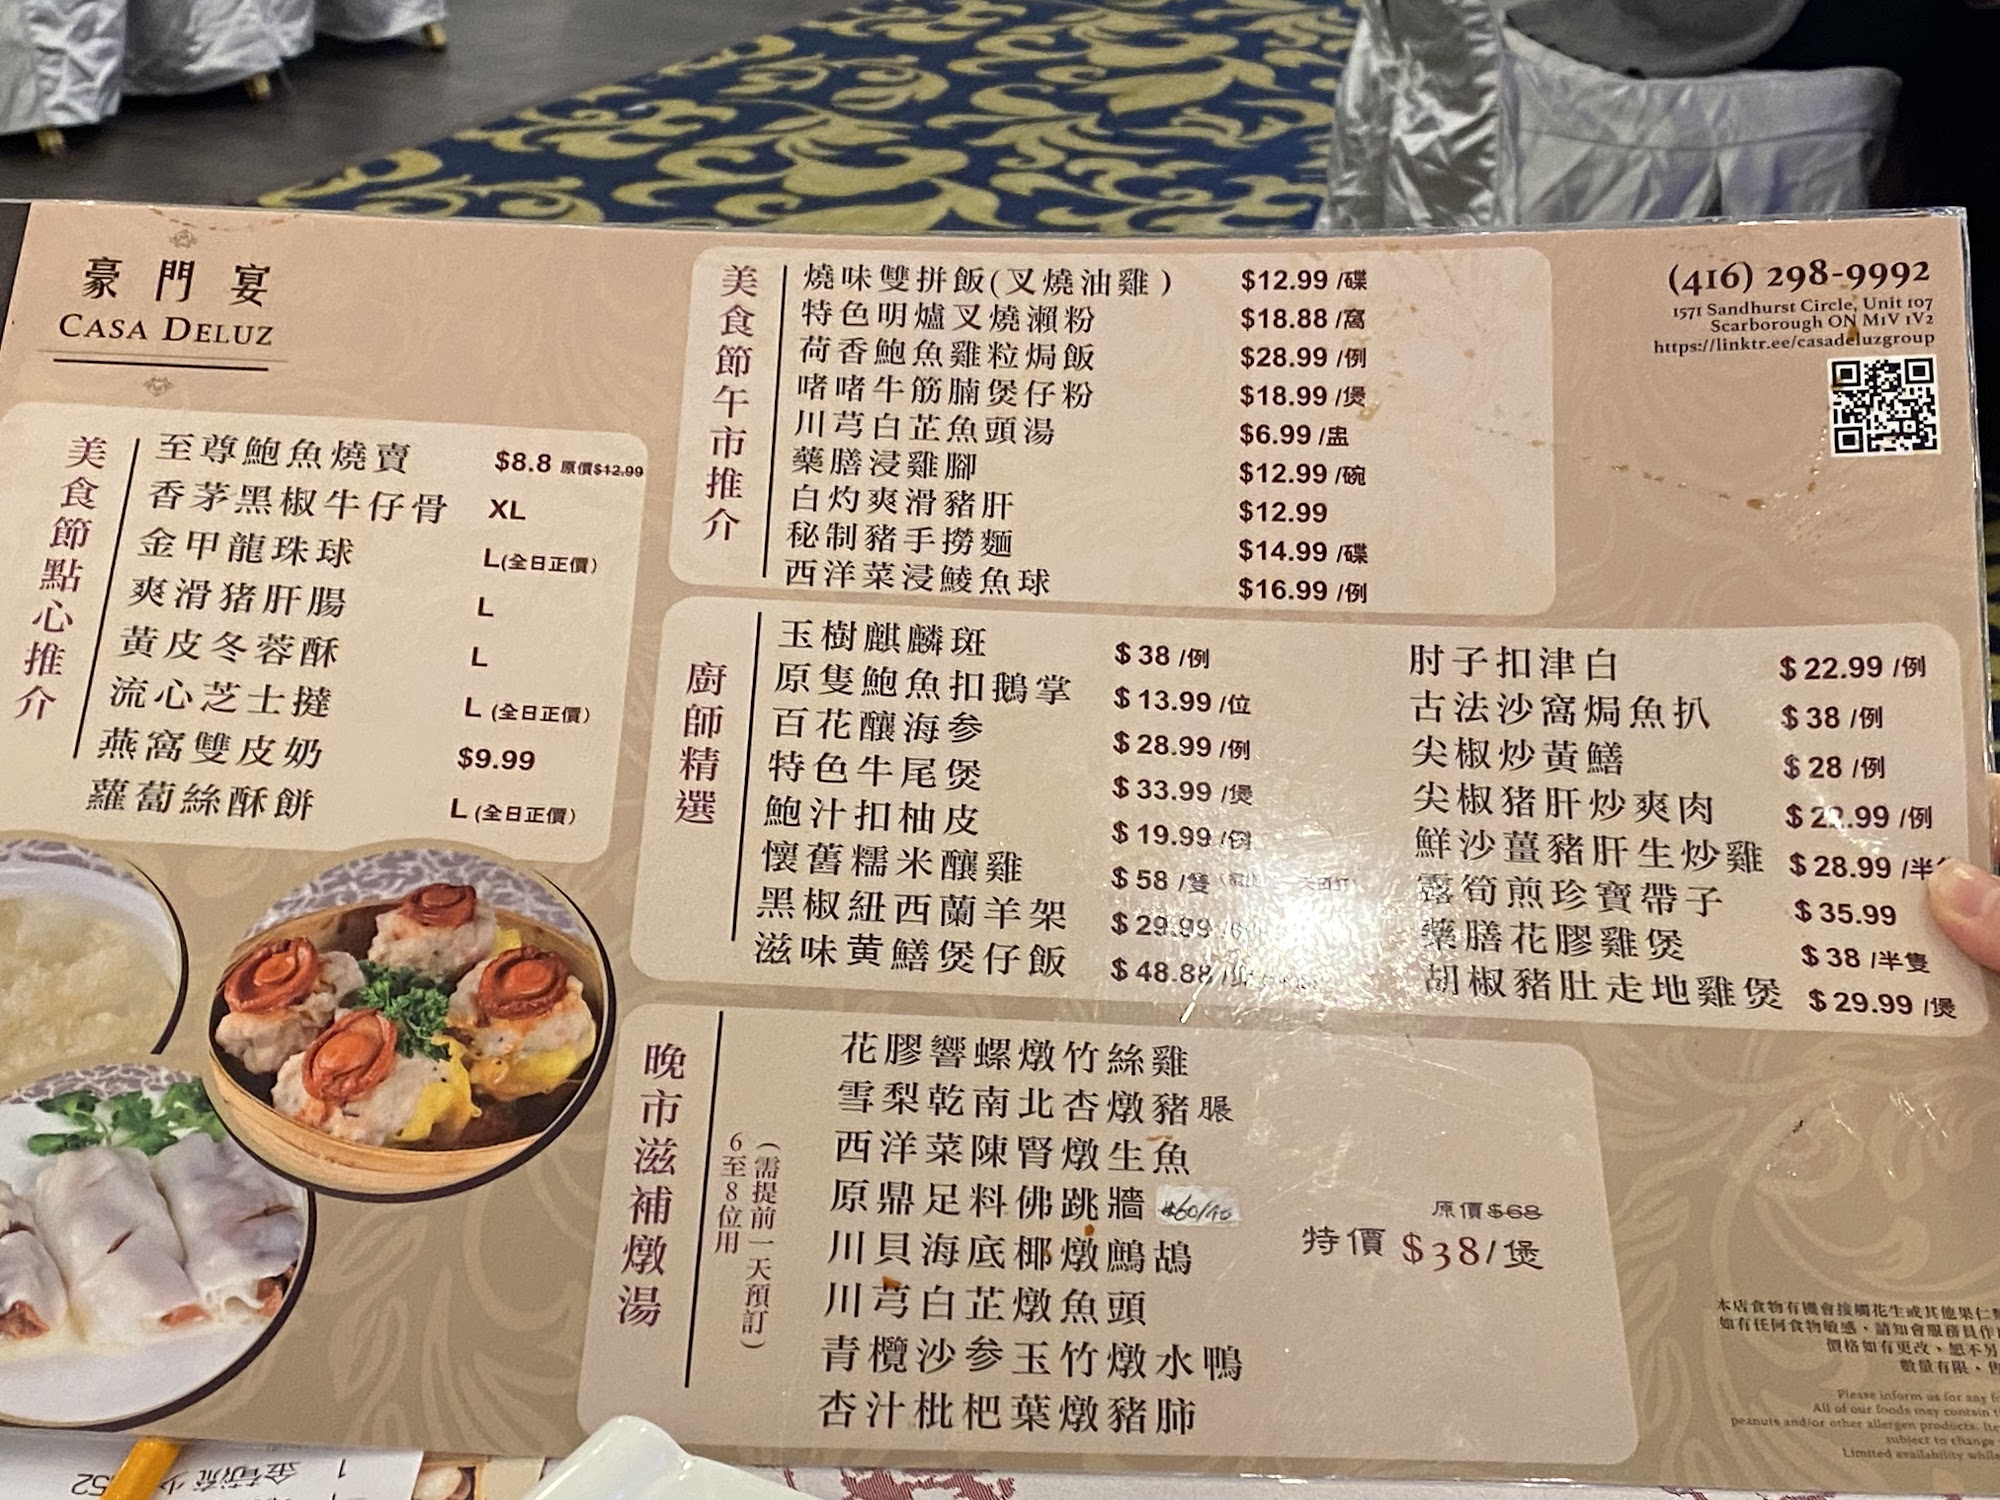 豪門宴
CASA DELUZ
(416) 298-9992
1571 Sandhurst Circle, Unit 107
Scarborough ON M1V 1V2
https://linktr.ee/casadeluzgroup
美食節點心推介
至尊鮑魚燒賣 $8.8 原價$12.99
香茅黑椒牛仔骨 XL
金甲龍珠球 L(全日正價)
爽滑猪肝腸 L
黃皮冬蓉酥 L
流心芝士撻 L (全日正價)
燕窩雙皮奶 $9.99
蘿蔔絲酥餅 L (全日正價)
美食節午市推介
燒味雙拼飯(叉燒油雞) $12.99 /碟
特色明爐叉燒瀨粉 $18.88 /窩
荷香鮑魚雞粒焗飯 $28.99 /例
啫啫牛筋腩煲仔粉 $18.99 /煲
川芎白芷魚頭湯 $6.99 /盅
藥膳浸雞腳 $12.99 /碗
白灼爽滑豬肝 $12.99
秘制豬手撈麵 $14.99 /碟
西洋菜浸鯪魚球 $16.99 /例
廚師精選
玉樹麒麟斑 $38 /例
原隻鮑魚扣鵝掌 $13.99 /位
百花釀海參 $28.99 /例
特色牛尾煲 $33.99 /煲
鮑汁扣柚皮 $19.99 /例
懷舊糯米釀雞 $58 /隻
黑椒紐西蘭羊架 $29.99
滋味黄鱔煲仔飯 $48.88
肘子扣津白 $22.99 /例
古法沙窩焗魚扒 $38 /例
尖椒炒黄鱔 $28 /例
尖椒猪肝炒爽肉 $22.99 /例
鮮沙薑豬肝生炒雞 $28.99 /半
露筍煎珍寶帶子 $35.99
藥膳花膠雞煲 $38 /半隻
胡椒豬肚走地雞煲 $29.99 /煲
晚市滋補燉湯
(需提前一天預訂)
6至8位用
花膠響螺燉竹絲雞
雪梨乾南北杏燉豬𦟌
西洋菜陳腎燉生魚
原鼎足料佛跳牆
川貝海底椰燉鷓鴣
川芎白芷燉魚頭
青欖沙参玉竹燉水鴨
杏汁枇杷葉燉豬肺
原價$68
特價 $38/煲
本店食物有機會接觸花生或其他果仁
如有任何食物敏感，請知會服務員作
價格如有更改，恕不另
數量有限，售
Please inform us for any
All of our foods may contain
peanuts and/or other allergen products.
subject to change
Limited availability while